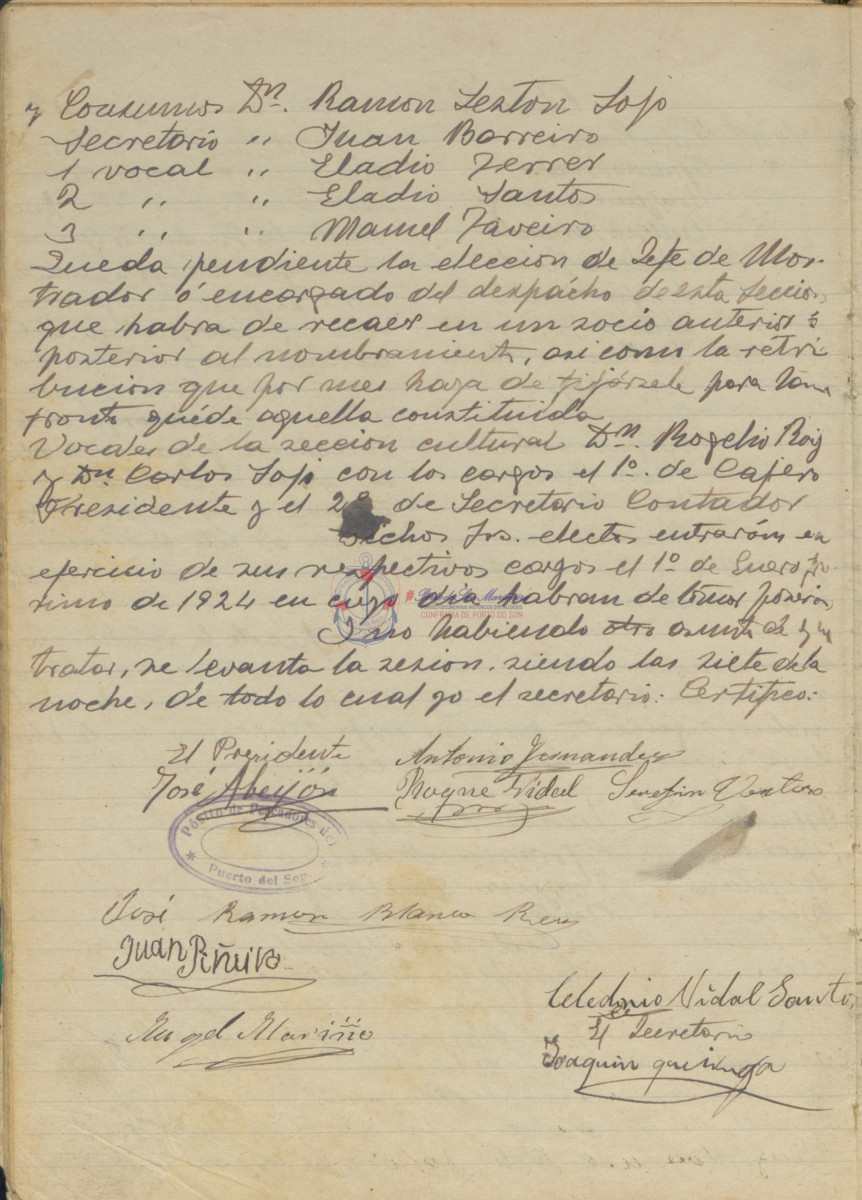 y Consumos Dn. Ramon Sexton Sojo
Secretario " Juan Barreiro
1 vocal " Eladio Ferrer
2 " " Eladio Santos
3 " " Manuel Taveiro
Queda pendiente la eleccion de Jefe de Mos-
trador ó encargado del despacho de esta Seccion,
que habra de recaer en un socio anterior ó
posterior al nombramiento, asi como la retri
bucion que por mes haya de fijársele para
pronto quede aquella constituida
Vocales de la seccion cultural Dn. Rogelio Roig
y Dn Carlos Sojo con los cargos el 1º. de Cajero
Presidente y el 2º de Secretario Contador
Dichos Srs. electos entrarán en
ejercicio de sus respectivos cargos el 1º de Enero pro
simo de 1924 en cuyo dia habran de tomar
CONFRARÍA DE PORTO DO SON
I no habiendo otro asunto de
tratar, se levanta la sesion, siendo las siete de la
noche, de todo lo cual yo el secretario: Certifico:
El Presidente Antonio Fernandez
José Abeijón Roque Vidal Serafin Ventoso
Pósito de Pescadores del
Puerto del Son
José Ramon Blanco Rey
Juan Piñeiro
Celedonio Vidal Santos
Angel Mariño
El Secretario
Joaquin quiroga